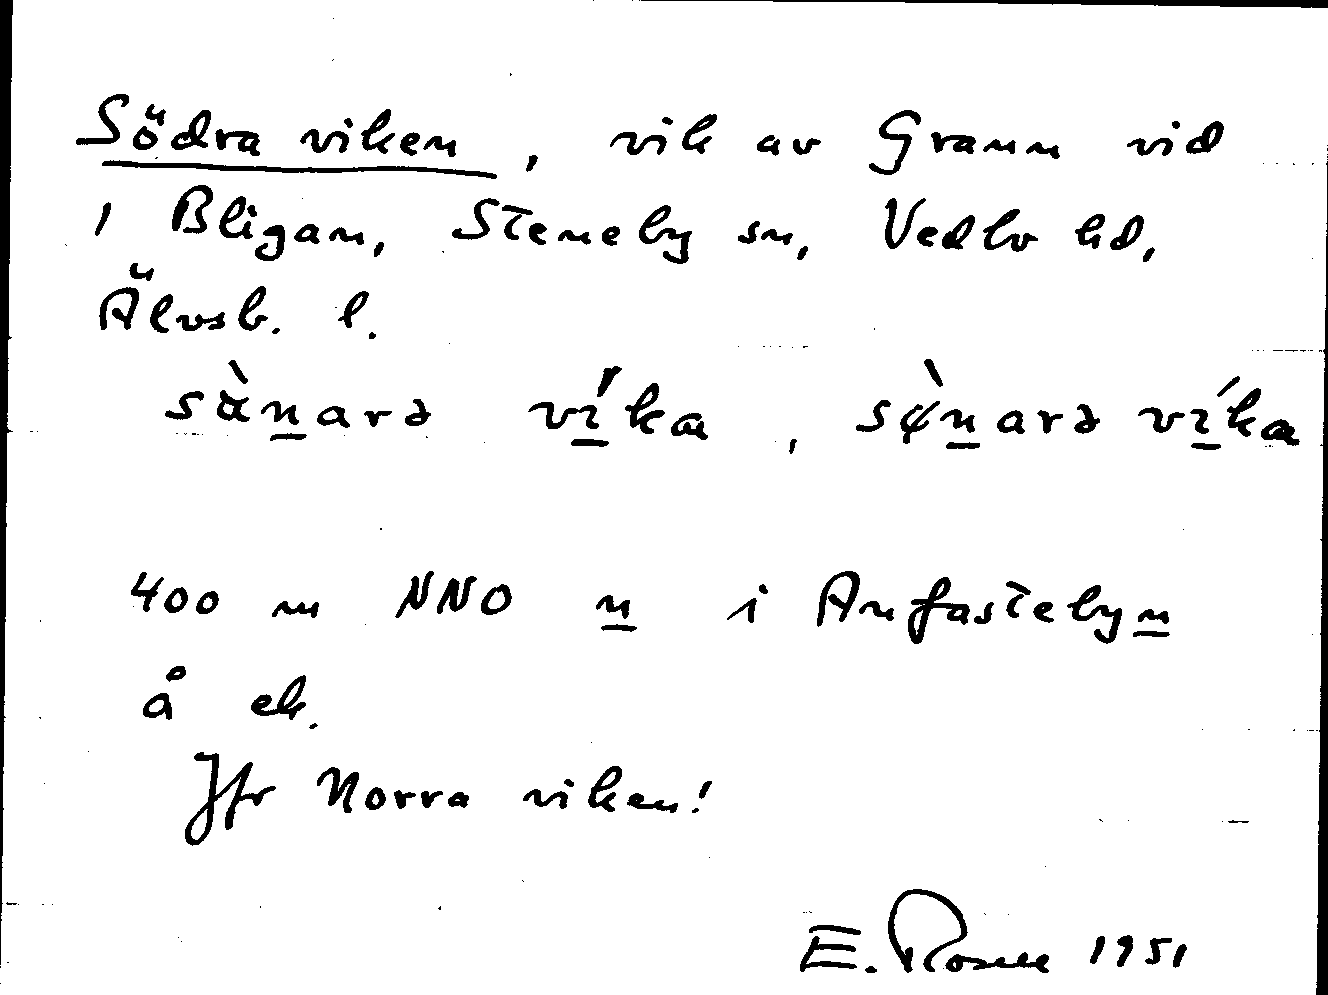 Södra viken, vik av Grann vid
1 Bligan, Steneby sn, Vedbo hd,
Älvsb. l.
sànarə víka, sø̀narə víka
400 m NNO n i Anfastebyn
å ek.
Jfr Norra viken!
E. Rosell 1951